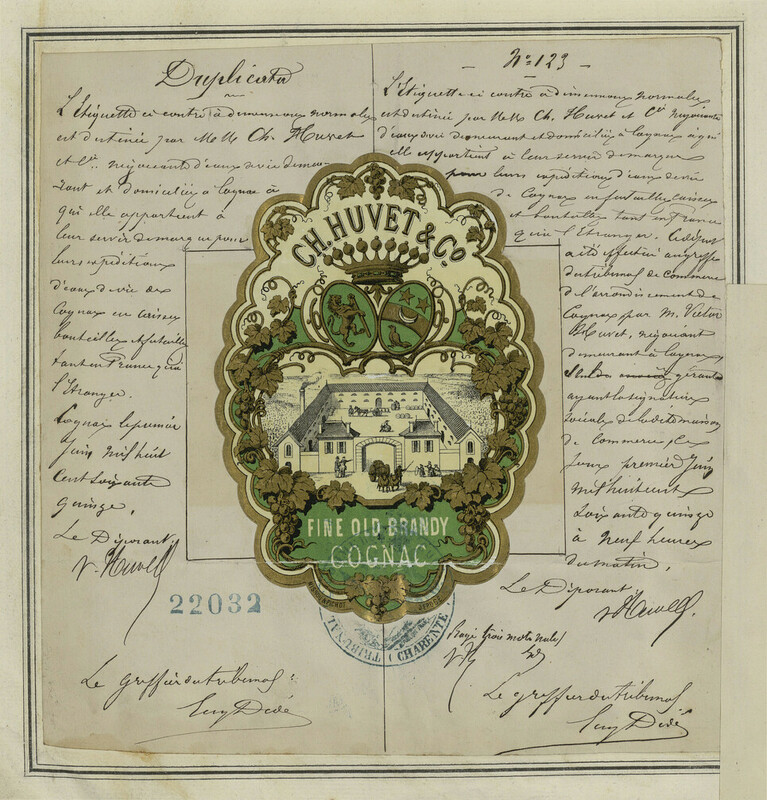 Duplicata
L'Etiquette ci contre à dimensions normales
est destinée par M.M. Ch. Huvet
et Cie. négociants d'eaux de vie demeu-
rant et domiciliés à Cognac à
qui elle appartient à
leur servir de marque pour
leurs expéditions
d'eaux de vie de
Cognac en caisses
bouteilles et futailles
tant en France qu'à
l'Etranger.
Cognac le premier
Juin Mil huit
Cent soixante
quinze.
Le Déposant,
V. Huvet
22032
Le Greffier du tribunal :
No. 123
L'Etiquette ci contre à dimensions normales
est destinée par M.M. Ch. Huvet et Cie Négociants
d'eaux de vie demeurant et domiciliés à Cognac à qui
elle appartient à leur servir de marque
pour leurs expéditions d'eaux de vie
de Cognac en futailles caisses
et bouteilles tant en France
qu'à l'Etranger. Ce dépôt
a été effectué au greffe
du tribunal de commerce
de l'arrondissement de
Cognac par M. Victor
Huvet, négociant
demeurant à Cognac
gérant
ayant la signature
sociale de la dite maison
de Commerce, ce
jour premier Juin
Mil huit cent
soixante quinze
à neuf heures
du matin.
Le Déposant
V. Huvet.
Rayé trois mots nuls
Le greffier du tribunal
CH. HUVET & Co.
FINE OLD BRANDY
COGNAC
TRIBUNAL
CHARENTE